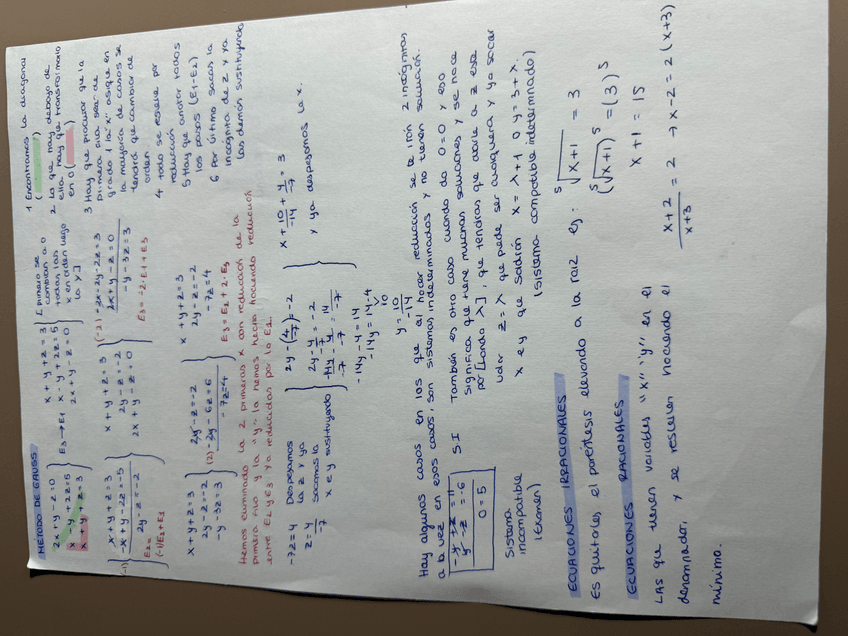 MÉTODO DE GAUSS
2x + y - z = 0
x - y + 2z = 5
x + y + z = 3
E3 → E1
x + y + z = 3
x - y + 2z = 5
2x + y - z = 0
[primero se
cambian a 0
todas las
x en orden luego
la y]
1 Encontramos la diagonal
( )
2 Lo que hay debajo de
ella hay que transformarlo
en 0 ( )
3 Hay que procurar que la
primera fila sea de
grado 1 la "x" asique en
la mayoría de casos se
tendrá que cambiar de
orden
4 todo se resuelve por
reducción
5 Hay que anotar todos
los pasos (E1-E2)
6 Por último sacas la
incógnita de z y ya
las demás sustituyendo
(-1) x + y + z = 3
-x + y - 2z = -5
2y - z = -2
E2 =
(-1)E2+E1
x + y + z = 3
2y - z = -2
2x + y - z = 0
(-2) -2x - 2y - 2z = 3
2x + y - z = 0
-y - 3z = 3
E3 = -2·E1+E3
x + y + z = 3
2y - z = -2
-y - 3z = 3
2y - z = -2
(2) -2y - 6z = 6
-7z = 4
x + y + z = 3
2y - z = -2
-7z = 4
E3 = E2 + 2·E3
Hemos eliminado la 2 primeras x con reducción de la
primera fila y la "y" la hemos hecho haciendo reducción
entre E2 y E3 ya reducidas por la E1.
-7z = 4
z = 4/-7
Despejamos
la z y ya
sacamos la
x e y sustituyendo
2y - (4/-7) = -2
2y - 4/-7 = -2
-14y/-7 - 4/-7 = 14/-7
-14y - 4 = 14
-14y = 14 - 4
10
y = 10/-14
x + 10/-14 + 4/-7 = 3
y ya despejamos la x.
Hay algunos casos en los que al hacer reducción se te irán 2 incógnitas
a la vez en esos casos, son sistemas indeterminados y no tienen solución.
-y + z = 11
y - z = -6
0 = 5
S.I
Sistema
incompatible
(examen)
También es otro caso cuando da 0 = 0 y eso
significa que tiene muchas soluciones y se hace
por [landa λ], que tendrías que darle a z ese
valor z = λ que puede ser cualquiera y ya sacar
x e y que saldrán x = λ + 1 o y = 3 + λ.
(sistema compatible indeterminado)
ECUACIONES IRRACIONALES
Es quitarles el paréntesis elevando a la raiz ej: ⁵√x+1 = 3
(⁵√x+1)⁵ = (3)⁵
x + 1 = 15
ECUACIONES RACIONALES
Las que tienen variables "x" "y" en el
denominador, y se resuelven haciendo el
mínimo.
x + 2 / x + 3 = 2 → x - 2 = 2(x+3)